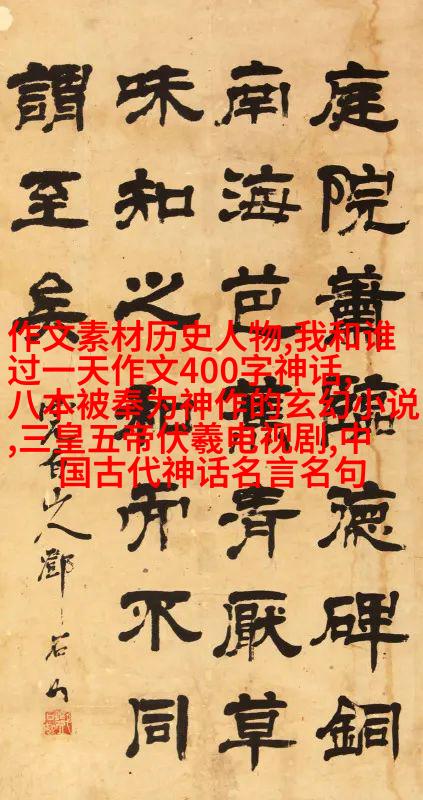 庭院蕭臨德碑銅
南海芭青厭草
味知之而不同
謂至矣
完白山人鄧石如
作文素材历史人物,我和谁
过一天作文400字神话,
八本被奉为神作的玄幻小说
,三皇五帝伏羲电视剧,中
国古代神话名言名句